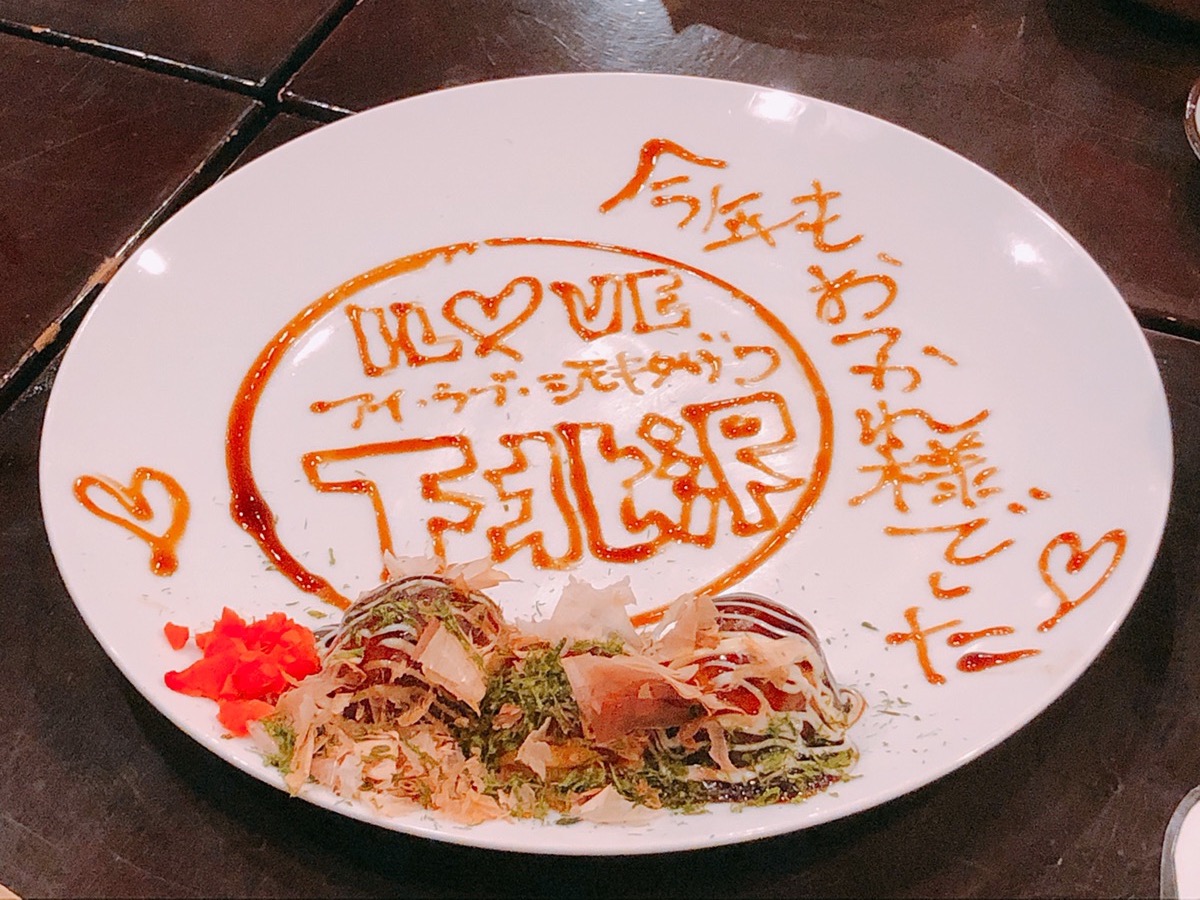 I L♡VE
アイ・ラブ・シモキタザワ
下北沢
今年も、おつかれ様でした♡